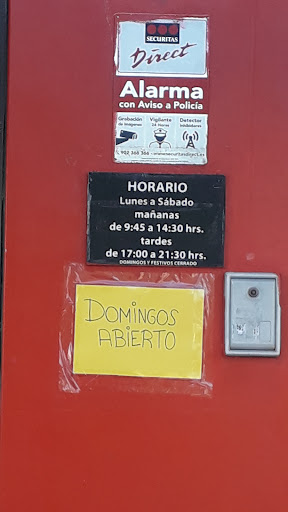 SECURITAS
Direct
Alarma
con Aviso a Policía
Grabación de imágenes
Vigilante 24 Horas
Detector inhibidores
902 368 366 - www.securitasdirect.es
HORARIO
Lunes a Sábado
mañanas
de 9:45 a 14:30 hrs.
tardes
de 17:00 a 21:30 hrs.
DOMINGOS Y FESTIVOS CERRADO
DOMINGOS
ABIERTO